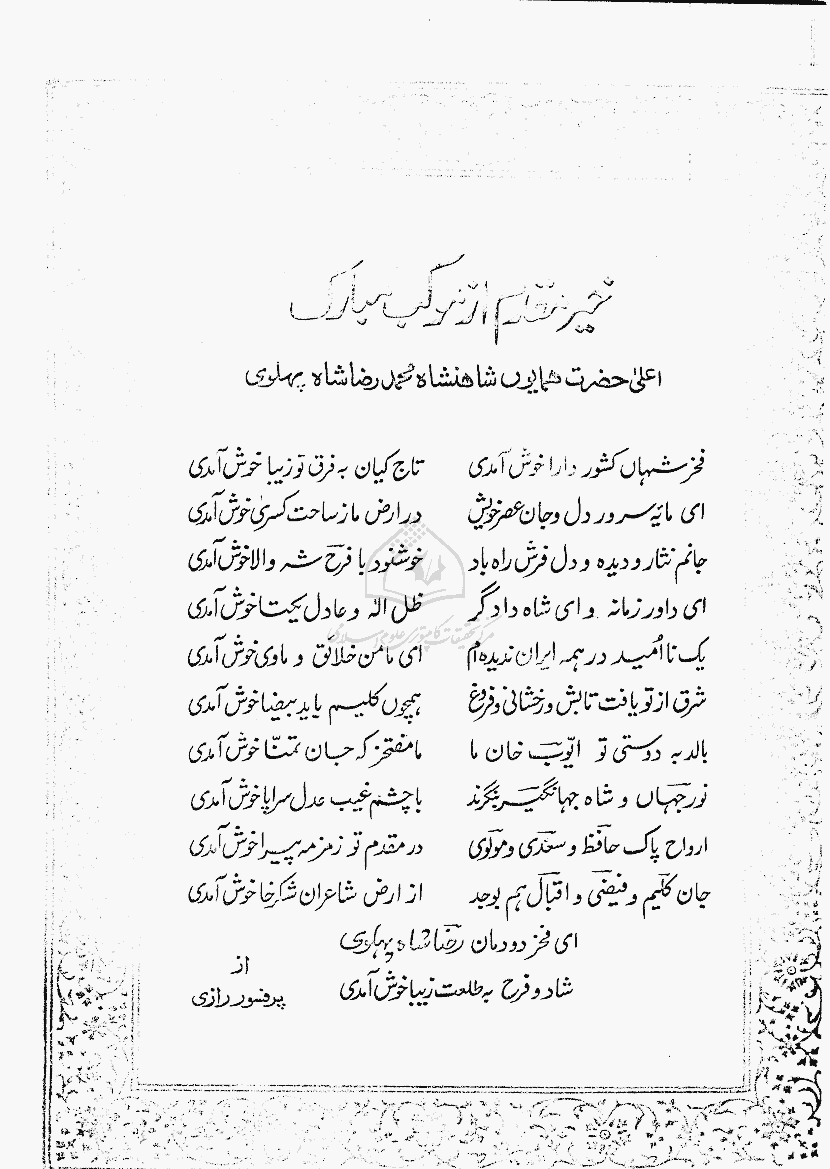 خیر مقدم از موکب مبارک
اعلیٰ حضرت همایوں شاهنشاه محمد رضا شاه پهلوی
فخر شهاں کشور دارا خوش آمدی تاج کیان به فرق تو زیبا خوش آمدی
ای مائهٔ سرور دل و جان عصر خویش در ارض ما ز ساحت کسریٰ خوش آمدی
جانم نثار و دیده و دل فرش راه باد خوشنود با فرح شه والا خوش آمدی
ای داور زمانه و ای شاه دادگر ظل الٰه و عادل یکتا خوش آمدی
یک نا اُمید در همه ایران ندیده‌ام ای مامن خلائق و ماوی خوش آمدی
شرق از تو یافت تابش و رخشانی و فروغ همچوں کلیم با ید بیضا خوش آمدی
بالد به دوستی تو ایّوب خان ما ما مفتخر که جان تمنّا خوش آمدی
نورجهاں و شاه جهانگیر بنگرند با چشم غیب عدل سراپا خوش آمدی
ارواح پاک حافظ و سعدی و مولوی در مقدم تو زمزمه پیرا خوش آمدی
جان کلیم و فیضی و اقبال هم بوجد از ارض شاعران شکرخا خوش آمدی
ای فخر دودمان رضا شاه پهلوی
شاد و فرح به طلعت زیبا خوش آمدی
از
پرفسور رازی
مرکز تحقیقات کامپیوتری علوم اسلامی